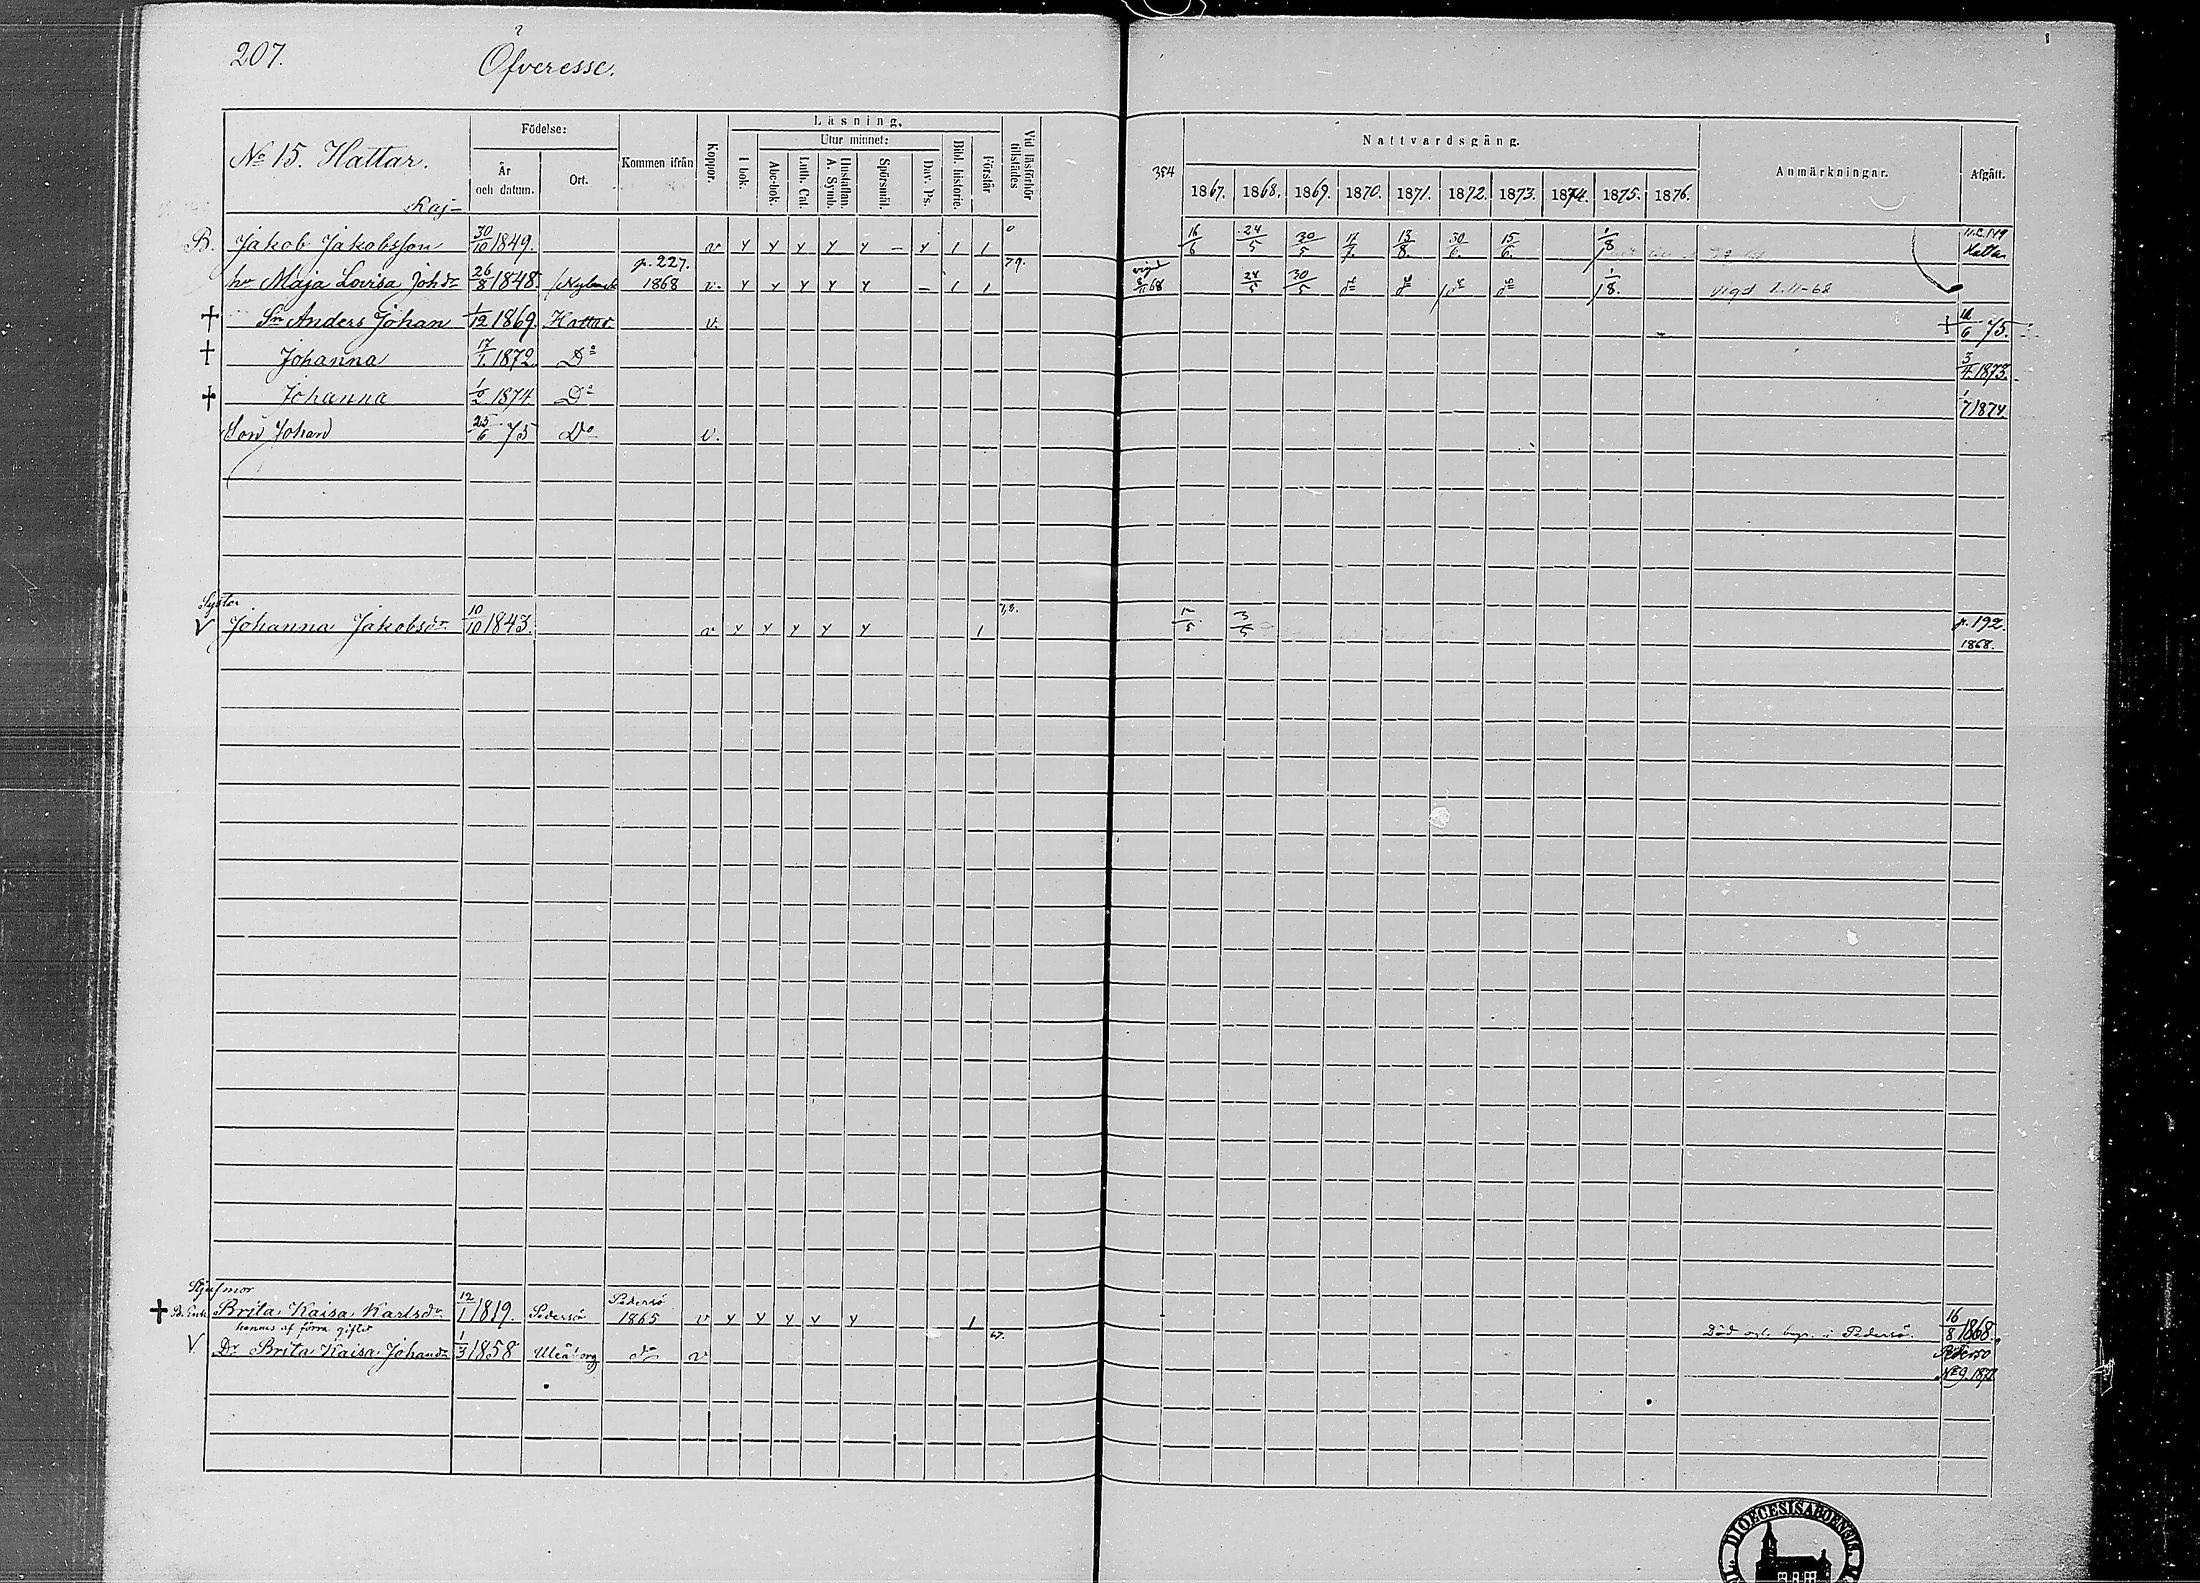 207. Öfveresse.
No 15. Hattar.
Födelse:
År och datum.
Ort.
Kommen ifrån
Koppor.
Läsning.
I bok.
Utur minnet:
Abc-bok.
Luth. Cat.
Hustaflan. A. Symb.
Spörsmål.
Dav. Ps.
Bibl. historie.
Förstår
Vid läsförhör tillstädes
354
Nattvardsgång.
1867. 1868. 1869. 1870. 1871. 1872. 1873. 1874. 1875. 1876.
Anmärkningar.
Afgått.
Kaj-
B. Jakob Jakobsson 30/10 1849. v y y y y y – y 1 1 16/6 24/5 30/5 17/7. 13/8. 30/6. 15/6. 1/8 Hattar
p. 227.
79.
hu Maja Lovisa Johdr 26/8 1848. 1868 v. y y y y y – 1 1 vigd 1/11 68 24/5 30/5 do do do do 1/8. vigd 1.11-68
† Sn Anders Johan 1/12 1869. Hattar v. † 75.
† Johanna 17/1. 1872. Do 3/4. 1873.
† Johanna 1/2 1874 Do 1/7 1874
Son Johan 25/6 75 Do v.
Syster
V Johanna Jakobsdr 10/10 1843. v y y y y y 1 3/5 p. 192.
1868.
Styfmor
† B. Enk. Brita Kaisa Karlsdr 12/1 1819. Pedersö Pedersö 1865 v y y y v y 1 Död och begr. i Pedersö. 16/8 1868.
hennes af förra giftet
67.
V Dr Brita Kaisa Johandr 1/3 1858 Uleåborg do v Pedersö
No 9.
DIOECESIS ABOENSIS